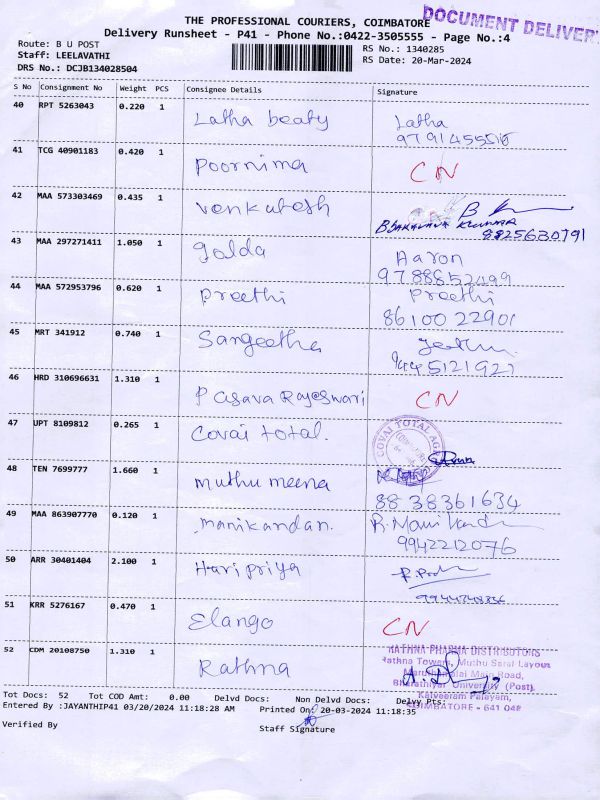 THE PROFESSIONAL COURIERS, COIMBATORE
DOCUMENT DELIVER
Delivery Runsheet - P41 - Phone No.:0422-3505555 - Page No.:4
Route: B U POST
RS No.: 1340285
Staff: LEELAVATHI
RS Date: 20-Mar-2024
DRS No.: DCJB134028504
S No Consignment No Weight PCS Consignee Details Signature
40 RPT 5263043 0.220 1 Latha beaty Latha
9791455510
41 TCG 40901183 0.420 1 Poornima CN
42 MAA 573303469 0.435 1 Venkatesh
8825630791
43 MAA 297271411 1.050 1 golda Aaron
44 MAA 572953796 0.620 1 Preethi Preethi
86100 22901
45 MRT 341912 0.740 1 Sangeetha
46 HRD 310696631 1.310 1 CN
47 UPT 8109812 0.265 1 Covai total. COVAI TOTAL
48 TEN 7699777 1.660 1 muthu meena
88 38361634
49 MAA 863907770 0.120 1 manikandan.
9942212076
50 ARR 30401404 2.100 1 Haripriya
51 KRR 5276167 0.470 1 Elango CN
52 CDM 20108750 1.310 1 Rathna
RATHNA PHARMA DISTRIBUTORS
Rathna Towers, Muthu Saral Layout
Main Road,
Bharathiyar University (Post),
Kalveeram Palayam,
COIMBATORE - 641 046
Tot Docs: 52 Tot COD Amt: 0.00 Delvd Docs: Non Delvd Docs: Delvy Pts:
Entered By :JAYANTHIP41 03/20/2024 11:18:28 AM Printed On: 20-03-2024 11:18:35
Verified By
Staff Signature